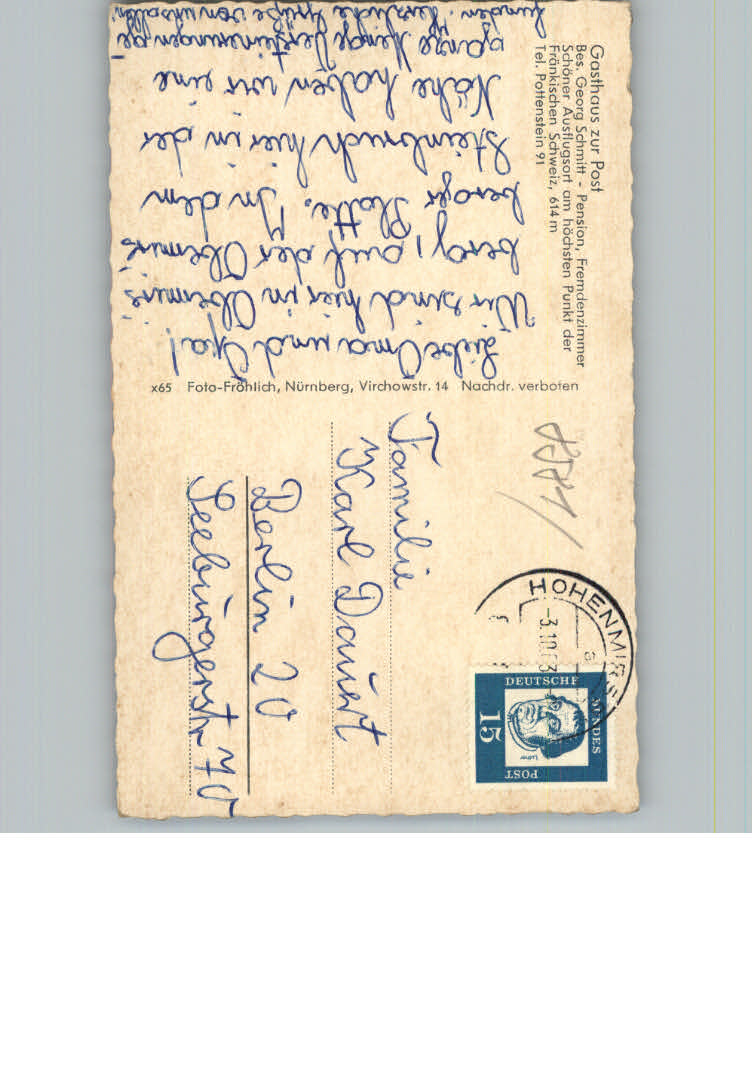 Gasthaus zur Post
Bes. Georg Schmitt - Pension, Fremdenzimmer
Schöner Ausflugsort am höchsten Punkt der
Fränkischen Schweiz, 614 m
Tel. Pottenstein 91
Liebe Oma und Opa!
Wir sind hier in Hohenmirs-
berg, auf der Hohenmirs-
berger Platte. In dem
Steinbruch hier in der
Nähe haben wir eine
ganze Menge Versteinerungen ge-
funden. Herzliche Grüße von uns allen.
x65 Foto-Fröhlich, Nürnberg, Virchowstr. 14 Nachdr. verboten
Familie
Karl Dauert
Berlin 20
Seeburgerstr. 70
HOHENMIRS
-3.10.63
a
DEUTSCHE
BUNDES
POST
15
Luther